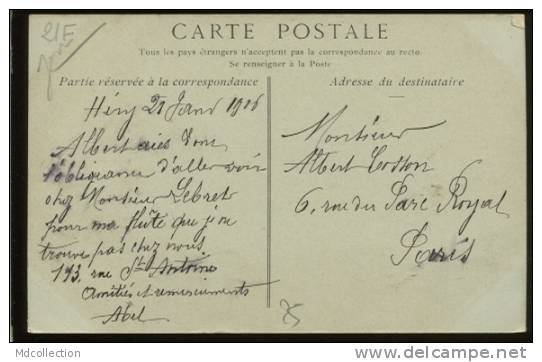 21F
CARTE POSTALE
Tous les pays étrangers n'acceptent pas la correspondance au recto
Se renseigner à la Poste
Partie réservée à la correspondance
Adresse du destinataire
Héry 21 Janv 1906
Albert aies donc
l'obligeance d'aller voir
chez Monsieur Lebret
pour ma flûte que je ne
trouve pas chez nous
193 rue St Antoine
Amitiés et remerciements
Abel
Monsieur
Albert Cosson
6, rue du Parc Royal
Paris
Mdcollection
http://www.delcampe.net